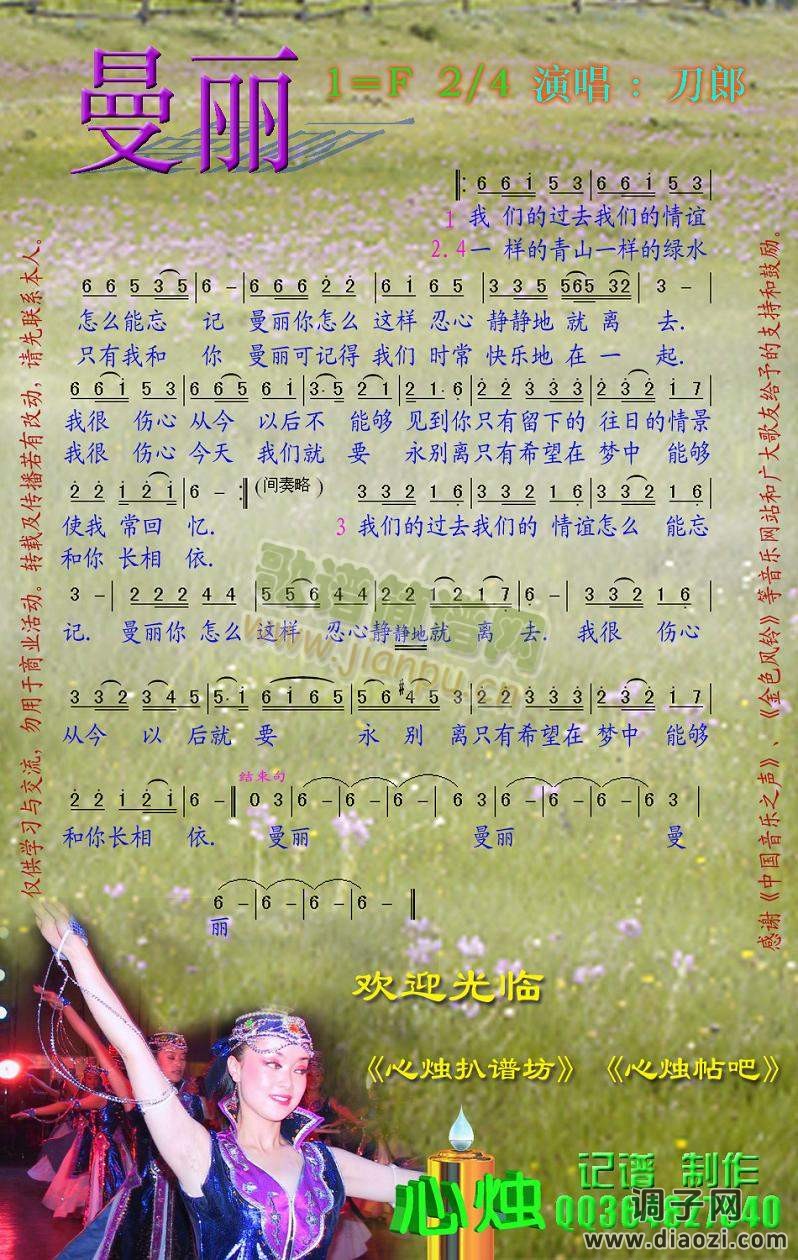 曼丽
1=F 2/4 演唱：刀郎
6 6 i 5 3 6 6 i 5 3
1 我们的过去我们的情谊
2.4一样的青山一样的绿水
6 6 5 3 5 6 - 6 6 6 2 2 6 i 6 5 3 3 5 565 32 3 -
怎么能忘 记 曼丽你怎么 这样 忍心 静静地 就 离 去.
只有我和 你 曼丽可记得 我们 时常 快乐地 在 一 起.
6 6 i 5 3 6 6 5 6 i 3· 5 2 i 2 i· 6 2 2 3 3 3 2 3 2 i 7
我很 伤心 从今 以后不 能够 见到你只有留下的 往日的情景
我很 伤心 今天 我们就 要 永别离只有希望在 梦中 能够
2 2 i 2 i 6 - :(间奏略) 3 3 2 1 6 3 3 2 1 6 3 3 2 1 6
使我 常回 忆. 3 我们的过去我们的 情谊怎么 能忘
和你 长相 依.
3 - 2 2 2 4 4 5 5 6 4 4 2 2 1 2 1 7 6 - 3 3 2 1 6
记. 曼丽你 怎么 这样 忍心静静地就 离 去. 我很 伤心
3 3 2 3 4 5 5· i 6 i 6 5 5 6 #4 5 3 2 2 3 3 3 2 3 2 i 7
从今 以 后就 要 永 别 离只有希望在 梦中 能够
结束句
2 2 i 2 i 6 - 0 3 6 - 6 - 6 - 6 3 6 - 6 - 6 - 6 3
和你长相 依. 曼丽 曼丽 曼
6 - 6 - 6 - 6 -
丽
仅供学习与交流，勿用于商业活动。转载及传播若有改动，请先联系本人。
感谢《中国音乐之声》、《金色风铃》等音乐网站和广大歌友给予的支持和鼓励。
歌谱简谱网
www.jianpu.cn
欢迎光临
《心烛扒谱坊》 《心烛帖吧》
记谱 制作
心烛
调子网
www.diaozi.com